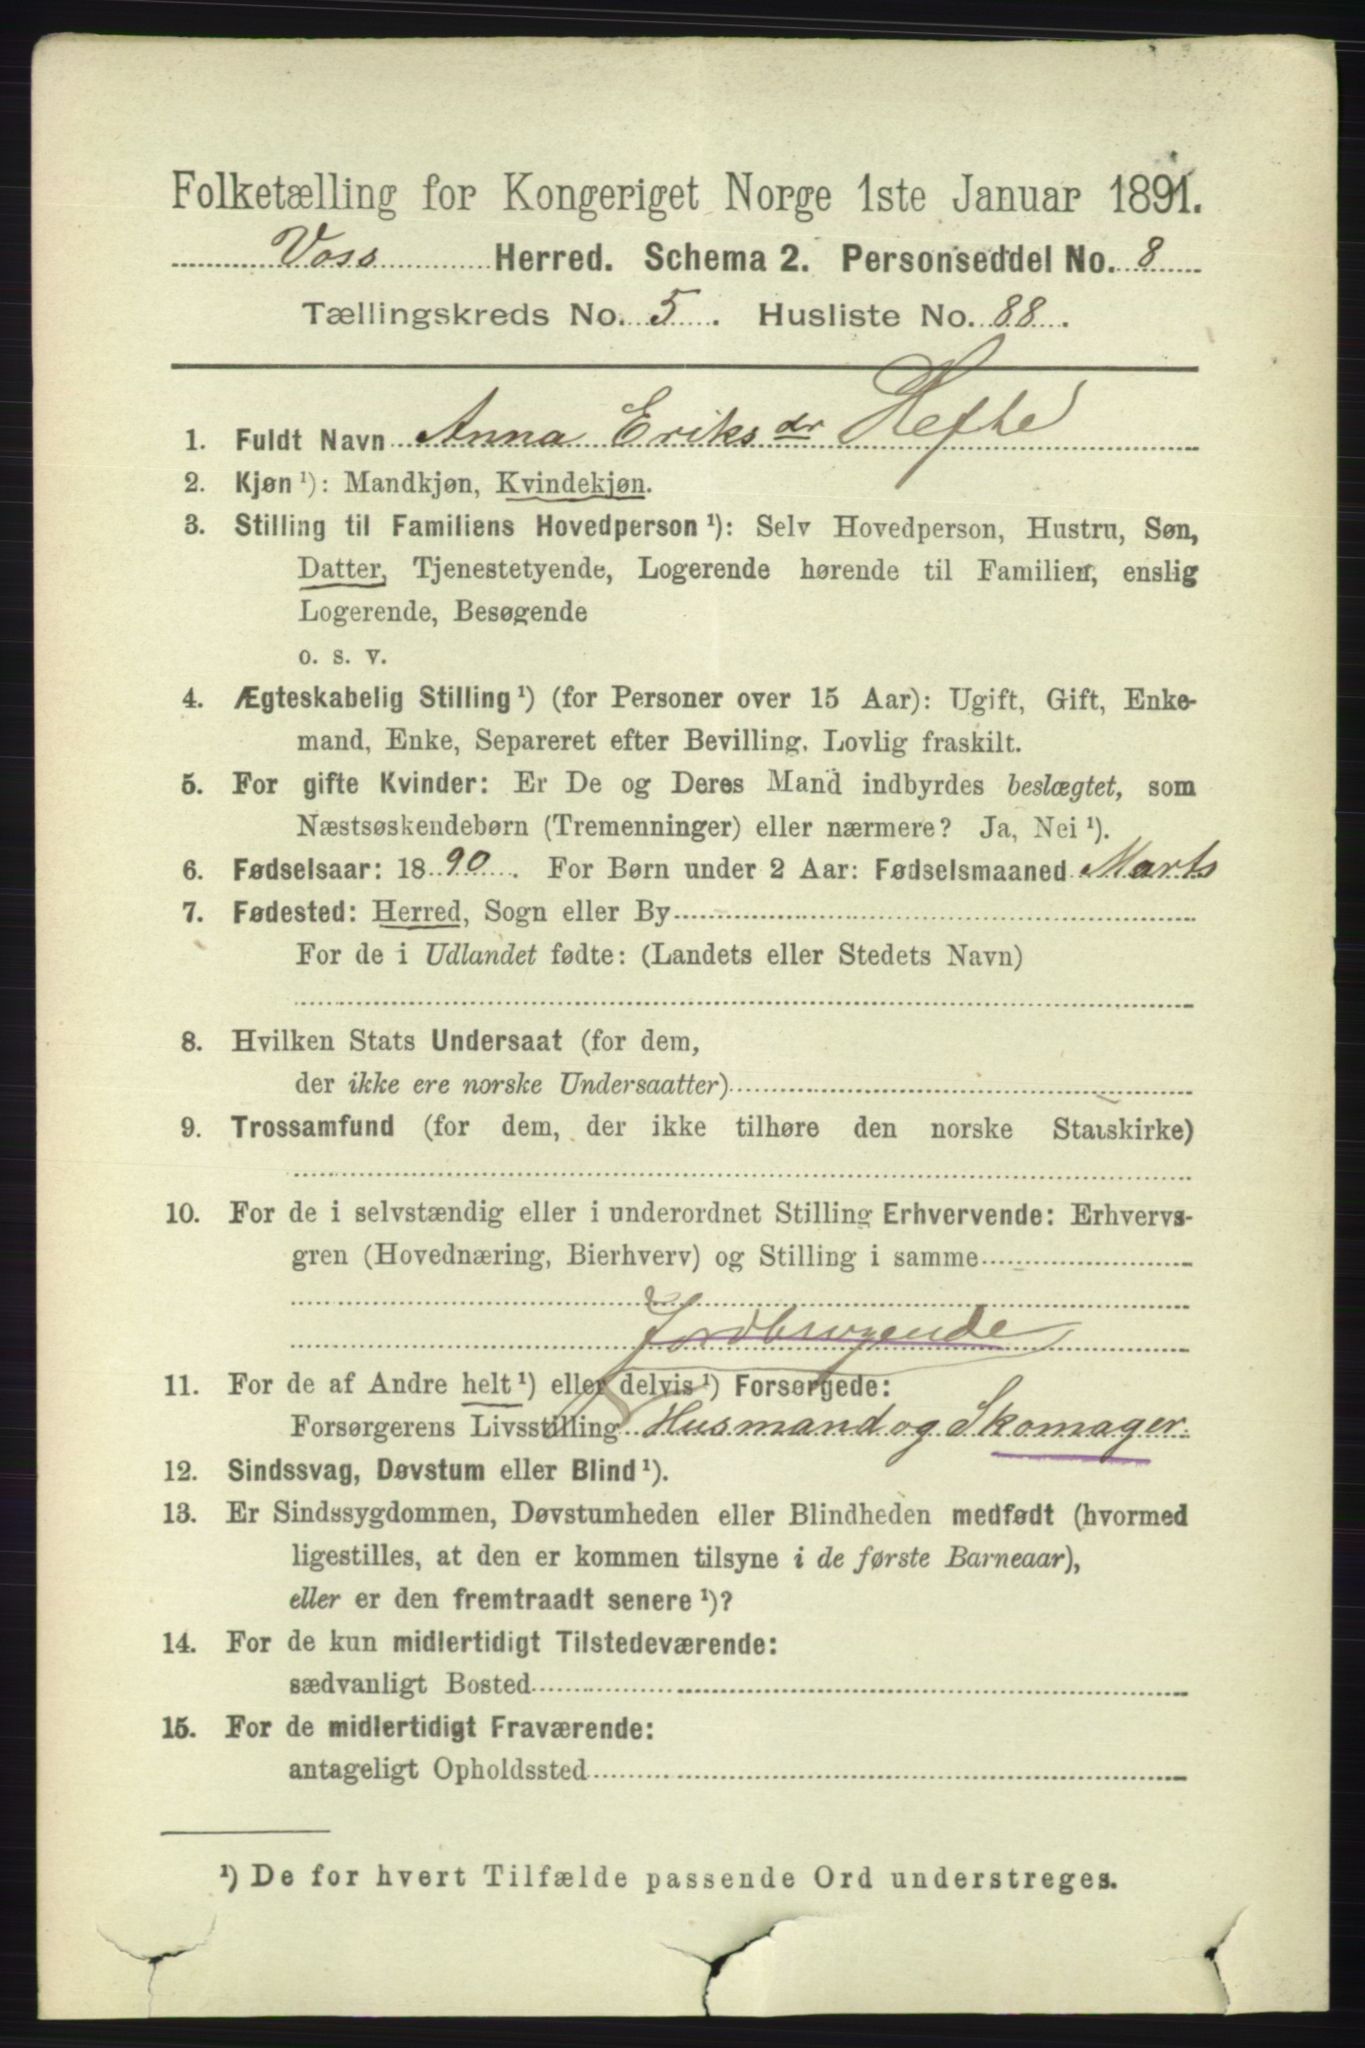 Folketælling for Kongeriget Norge 1ste Januar 1891.
Voss Herred. Schema 2. Personseddel No. 8
Tællingskreds No. 5. Husliste No. 88.
1. Fuldt Navn Anna Eriksdr Hefte
2. Kjøn ¹): Mandkjøn, Kvindekjøn.
3. Stilling til Familiens Hovedperson ¹): Selv Hovedperson, Hustru, Søn,
Datter, Tjenestetyende, Logerende hørende til Familien, enslig
Logerende, Besøgende
o. s. v.
4. Ægteskabelig Stilling ¹) (for Personer over 15 Aar): Ugift, Gift, Enke-
mand, Enke, Separeret efter Bevilling. Lovlig fraskilt.
5. For gifte Kvinder: Er De og Deres Mand indbyrdes beslægtet, som
Næstsøskendebørn (Tremenninger) eller nærmere? Ja, Nei ¹).
6. Fødselsaar: 1890. For Børn under 2 Aar: Fødselsmaaned Marts
7. Fødested: Herred, Sogn eller By
For de i Udlandet fødte: (Landets eller Stedets Navn)
8. Hvilken Stats Undersaat (for dem,
der ikke ere norske Undersaatter)
9. Trossamfund (for dem, der ikke tilhøre den norske Statskirke)
10. For de i selvstændig eller i underordnet Stilling Erhvervende: Erhvervs-
gren (Hovednæring, Bierhverv) og Stilling i samme
Jordbrugende
11. For de af Andre helt ¹) eller delvis ¹) Forsørgede:
Forsørgerens Livsstilling Husmand og Skomager.
12. Sindssvag, Døvstum eller Blind ¹).
13. Er Sindssygdommen, Døvstumheden eller Blindheden medfødt (hvormed
ligestilles, at den er kommen tilsyne i de første Barneaar),
eller er den fremtraadt senere ¹)?
14. For de kun midlertidigt Tilstedeværende:
sædvanligt Bosted
15. For de midlertidigt Fraværende:
antageligt Opholdssted
¹) De for hvert Tilfælde passende Ord understreges.